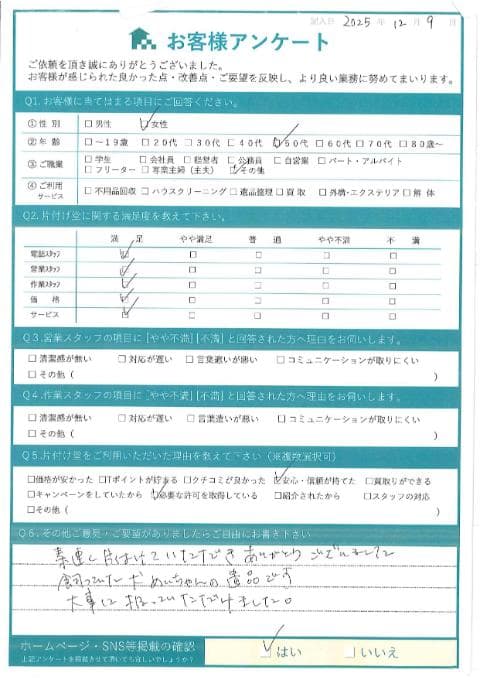 記入日 2025年 12月 9日
お客様アンケート
ご依頼を頂き誠にありがとうございました。
お客様が感じられた良かった点・改善点・ご要望を反映し、より良い業務に努めてまいります。
Q1.お客様に当てはまる項目にご回答ください。
①性 別 □男性 ☑女性
②年 齢 □〜19歳 □20代 □30代 □40代 ☑50代 □60代 □70代 □80歳〜
③ご職業 □学生 □会社員 □経営者 □公務員 □自営業 □パート・アルバイト
□フリーター □専業主婦(主夫) ☑その他
④ご利用サービス □不用品回収 □ハウスクリーニング □遺品整理 □買取 □外構・エクステリア □解体
Q2.片付け堂に関する満足度を教えて下さい。
満 足 やや満足 普 通 やや不満 不 満
電話スタッフ ☑ □ □ □ □
営業スタッフ ☑ □ □ □ □
作業スタッフ ☑ □ □ □ □
価 格 ☑ □ □ □ □
サービス ☑ □ □ □ □
Q3.営業スタッフの項目に[やや不満][不満]と回答された方へ理由をお伺いします。
□清潔感が無い □対応が遅い □言葉遣いが悪い □コミュニケーションが取りにくい
□その他( )
Q4.作業スタッフの項目に[やや不満][不満]と回答された方へ理由をお伺いします。
□清潔感が無い □対応が遅い □言葉遣いが悪い □コミュニケーションが取りにくい
□その他( )
Q5.片付け堂をご利用いただいた理由を教えて下さい(※複数選択可)
□価格が安かった □Tポイントが貯まる □クチコミが良かった ☑安心・信頼が持てた □買取りができる
□キャンペーンをしていたから ☑必要な許可を取得している □紹介されたから □スタッフの対応
□その他( )
Q6.その他ご意見・ご要望がありましたらご自由にお書き下さい
素速く片付けていただき ありがとうございました
飼っていた犬 めいちゃんの遺品です
大事に扱っていただけました。
ホームページ・SNS等掲載の確認
上記アンケートを掲載させて頂いても宜しいでしょうか?
☑はい □いいえ